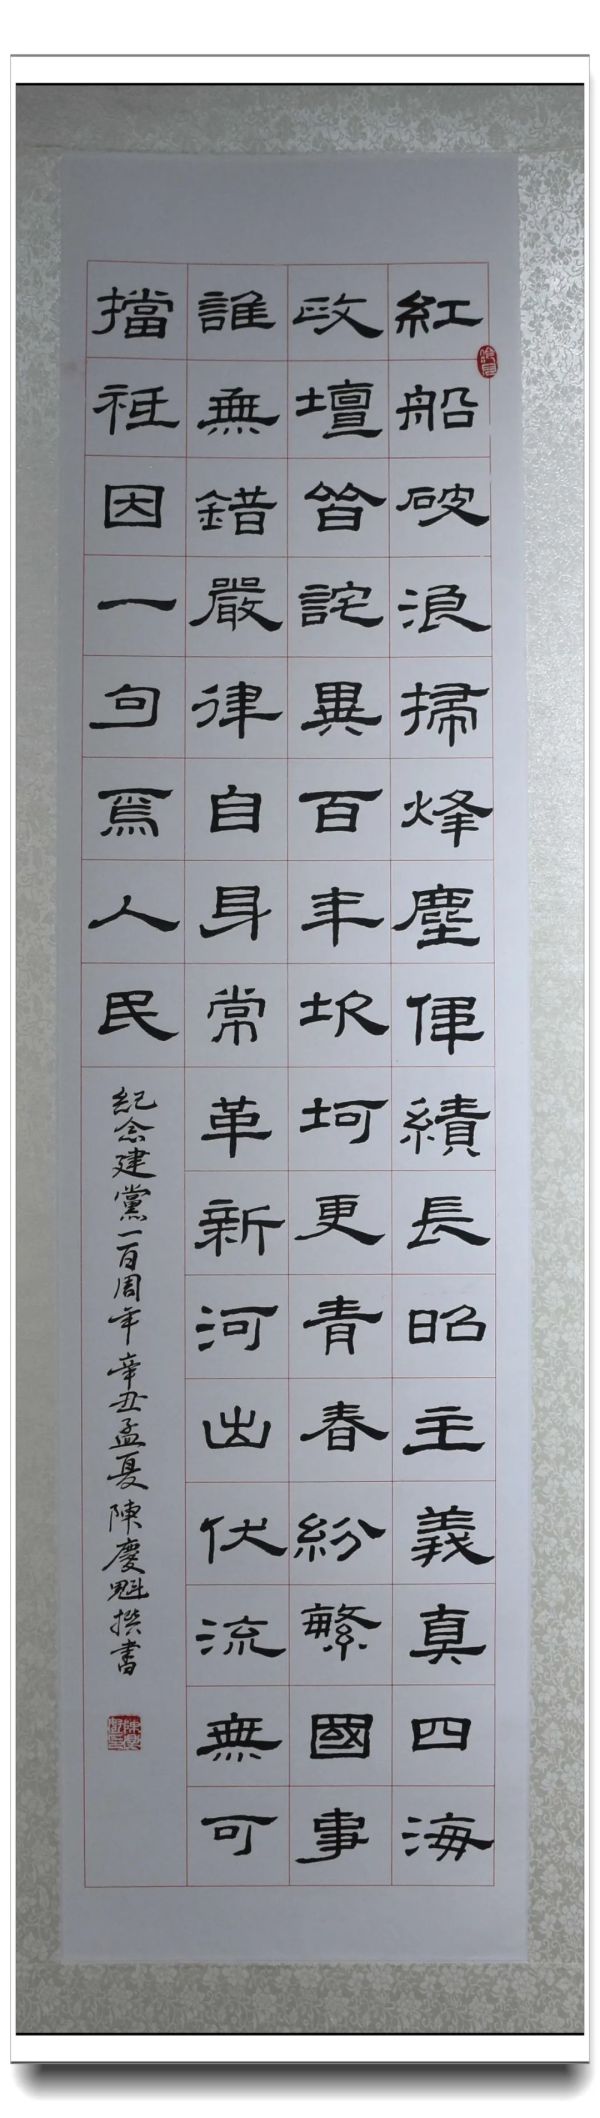 紅船破浪掃烽塵偉績長昭主義真四海
政壇皆詫異百年坎坷更青春紛繁國事
誰無錯嚴律自身常革新河出伏流無可
擋祗因一句為人民
紀念建黨一百周年辛丑孟夏陳慶魁撰書